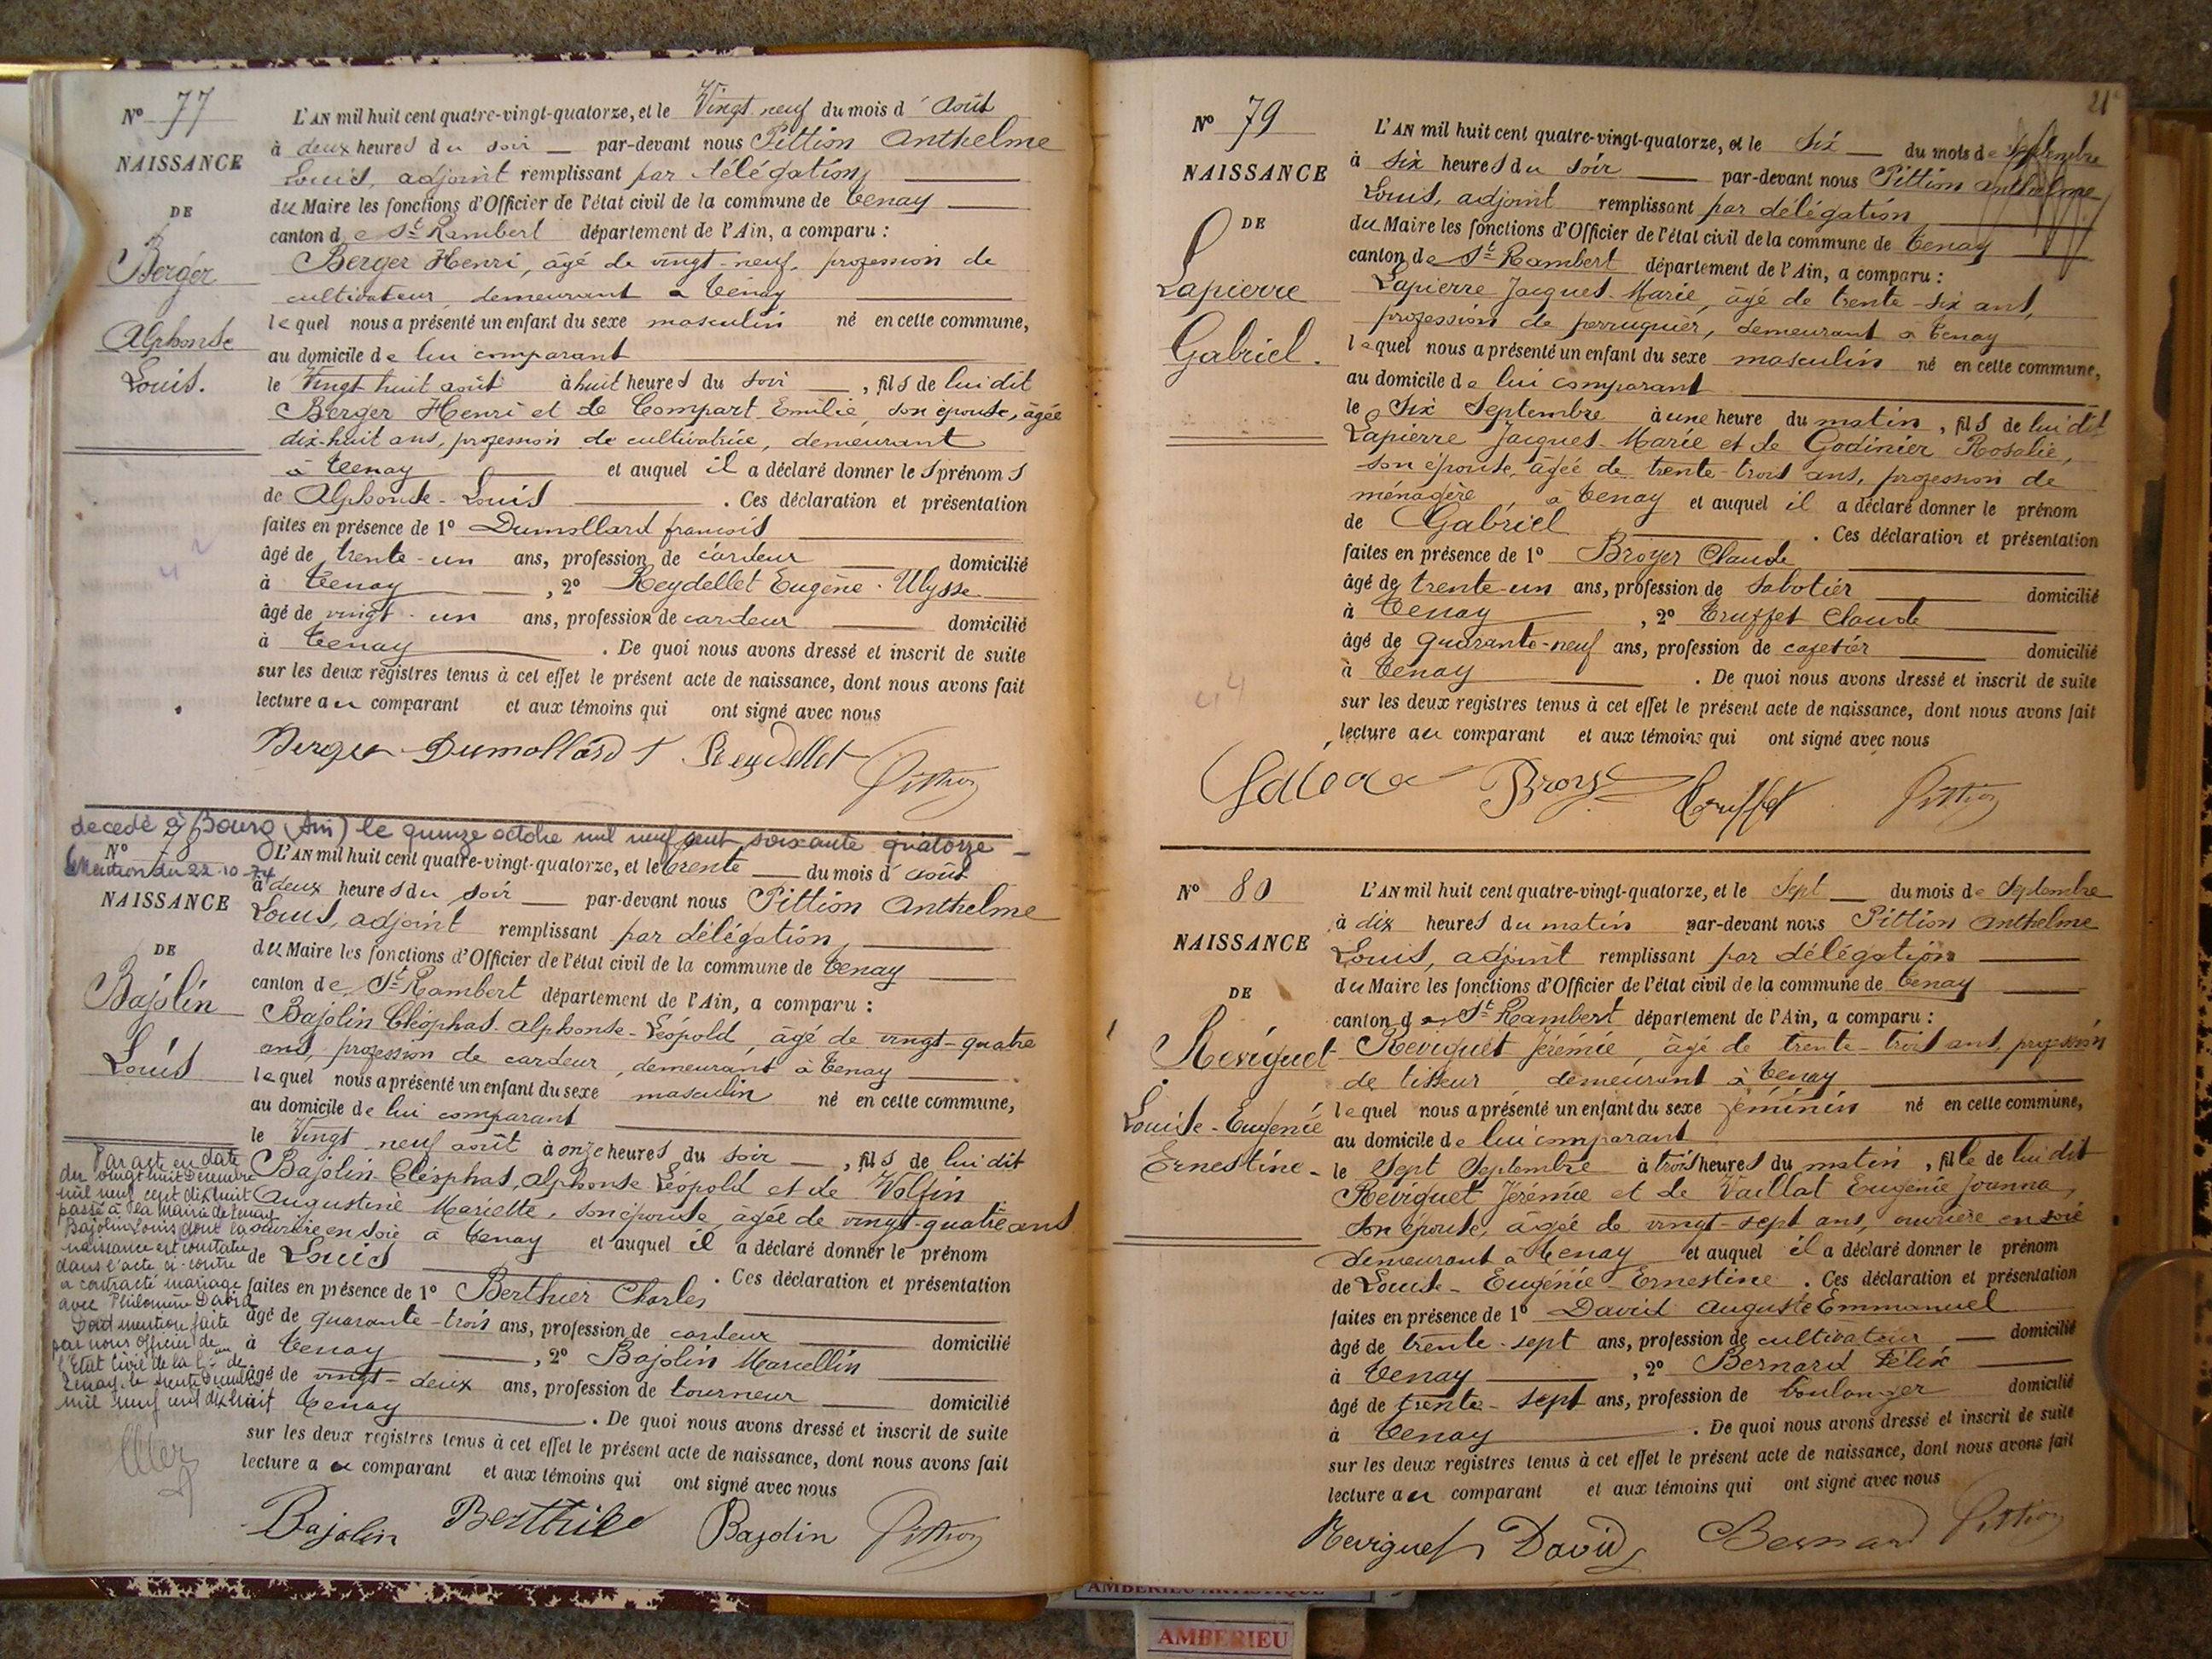 N° 77
NAISSANCE
DE
Berger
Alphonse
Louis.
L'AN mil huit cent quatre-vingt-quatorze, et le Vingt neuf du mois d'août
à deux heures du soir — par-devant nous Pittion Anthelme
Louis, adjoint remplissant par délégation,
du Maire les fonctions d'Officier de l'état civil de la commune de Tenay
canton de St Rambert département de l'Ain, a comparu :
Berger Henri, âgé de vingt-neuf, profession de
cultivateur, demeurant à Tenay
lequel nous a présenté un enfant du sexe masculin né en cette commune,
au domicile de lui comparant
le Vingt huit août à huit heures du soir —, fils de lui dit
Berger Henri et de Compart Emilie, son épouse, âgée
dix-huit ans, profession de cultivatrice, demeurant
à Tenay et auquel il a déclaré donner les prénoms
de Alphonse-Louis . Ces déclaration et présentation
faites en présence de 1° Dumollard françois
âgé de trente-un ans, profession de cardeur domicilié
à Tenay, 2° Reydellet Eugène-Ulysse
âgé de vingt-un ans, profession de cardeur domicilié
à Tenay . De quoi nous avons dressé et inscrit de suite
sur les deux registres tenus à cet effet le présent acte de naissance, dont nous avons fait
lecture au comparant et aux témoins qui ont signé avec nous
Berger Dumollard f Reydellet Pittion
décédé à Bourg (Ain) le quinze octobre mil neuf cent soixante quatorze
Mention du 22-10-74
N° 78
NAISSANCE
DE
Bajolin
Louis
L'AN mil huit cent quatre-vingt-quatorze, et le trente — du mois d'août
à deux heures du soir — par-devant nous Pittion Anthelme
Louis, adjoint remplissant par délégation,
du Maire les fonctions d'Officier de l'état civil de la commune de Tenay
canton de St Rambert département de l'Ain, a comparu :
Bajolin Cléophas-Alphonse-Léopold, âgé de vingt-quatre
ans, profession de cardeur, demeurant à Tenay
lequel nous a présenté un enfant du sexe masculin né en cette commune,
au domicile de lui comparant
le Vingt neuf août à onze heures du soir —, fils de lui dit
Bajolin Cléophas, Alphonse Léopold et de Volfin
Augustine Mariette, son épouse, âgée de vingt-quatre ans
ouvrière en soie à Tenay et auquel il a déclaré donner le prénom
de Louis . Ces déclaration et présentation
faites en présence de 1° Berthier Charles
âgé de quarante-trois ans, profession de cardeur domicilié
à Tenay, 2° Bajolin Marcellin
âgé de vingt-deux ans, profession de tourneur domicilié
à Tenay . De quoi nous avons dressé et inscrit de suite
sur les deux registres tenus à cet effet le présent acte de naissance, dont nous avons fait
lecture au comparant et aux témoins qui ont signé avec nous
Bajolin Berthier Bajolin Pittion
Par acte en date
du vingt huit Décembre
mil neuf cent dix huit
passé à la Mairie de Tenay
Bajolin Louis dont la
naissance est constatée
dans l'acte ci-contre
a contracté mariage
avec Philomène David
Dont mention faite
par nous Officier de
l'Etat Civil de la Cne de
Tenay le trente Décembre
mil neuf cent dix huit
21
N° 79
NAISSANCE
DE
Lapierre
Gabriel.
L'AN mil huit cent quatre-vingt-quatorze, et le Six — du mois de Septembre
à six heures du soir — par-devant nous Pittion Anthelme
Louis, adjoint remplissant par délégation
du Maire les fonctions d'Officier de l'état civil de la commune de Tenay
canton de St Rambert département de l'Ain, a comparu :
Lapierre Jacques-Marie, âgé de trente-six ans,
profession de perruquier, demeurant à Tenay
lequel nous a présenté un enfant du sexe masculin né en cette commune,
au domicile de lui comparant
le Six Septembre à une heure du matin, fils de lui dit
Lapierre Jacques-Marie et de Godinier Rosalie,
son épouse, âgée de trente-trois ans, profession de
ménagère, à Tenay et auquel il a déclaré donner le prénom
de Gabriel . Ces déclaration et présentation
faites en présence de 1° Broyer Claude
âgé de trente-un ans, profession de sabotier domicilié
à Tenay, 2° Truffet Claude
âgé de quarante-neuf ans, profession de cafetier domicilié
à Tenay . De quoi nous avons dressé et inscrit de suite
sur les deux registres tenus à cet effet le présent acte de naissance, dont nous avons fait
lecture au comparant et aux témoins qui ont signé avec nous
Broyer Truffet Pittion
N° 80
NAISSANCE
DE
Reviguet
Louise-Eugénie
Ernestine-
L'AN mil huit cent quatre-vingt-quatorze, et le Sept — du mois de Septembre
à dix heures du matin par-devant nous Pittion Anthelme
Louis, adjoint remplissant par délégation
du Maire les fonctions d'Officier de l'état civil de la commune de Tenay
canton de St Rambert département de l'Ain, a comparu :
Reviguet Jérémie, âgé de trente-trois ans, profession
de tisseur, demeurant à Tenay
lequel nous a présenté un enfant du sexe féminin né en cette commune,
au domicile de lui comparant
le Sept Septembre à trois heures du matin, fille de lui dit
Reviguet Jérémie et de Vaillat Eugénie Joanna,
son épouse, âgée de vingt-sept ans, ouvrière en soie
demeurant à Tenay et auquel il a déclaré donner le prénom
de Louise-Eugénie-Ernestine . Ces déclaration et présentation
faites en présence de 1° David Auguste Emmanuel
âgé de trente-sept ans, profession de cultivateur — domicilié
à Tenay, 2° Bernard Félix
âgé de trente-sept ans, profession de boulanger domicilié
à Tenay . De quoi nous avons dressé et inscrit de suite
sur les deux registres tenus à cet effet le présent acte de naissance, dont nous avons fait
lecture au comparant et aux témoins qui ont signé avec nous
Reviguet David Bernard Pittion
AMBERIEU ARTISTIQUE
AMBERIEU